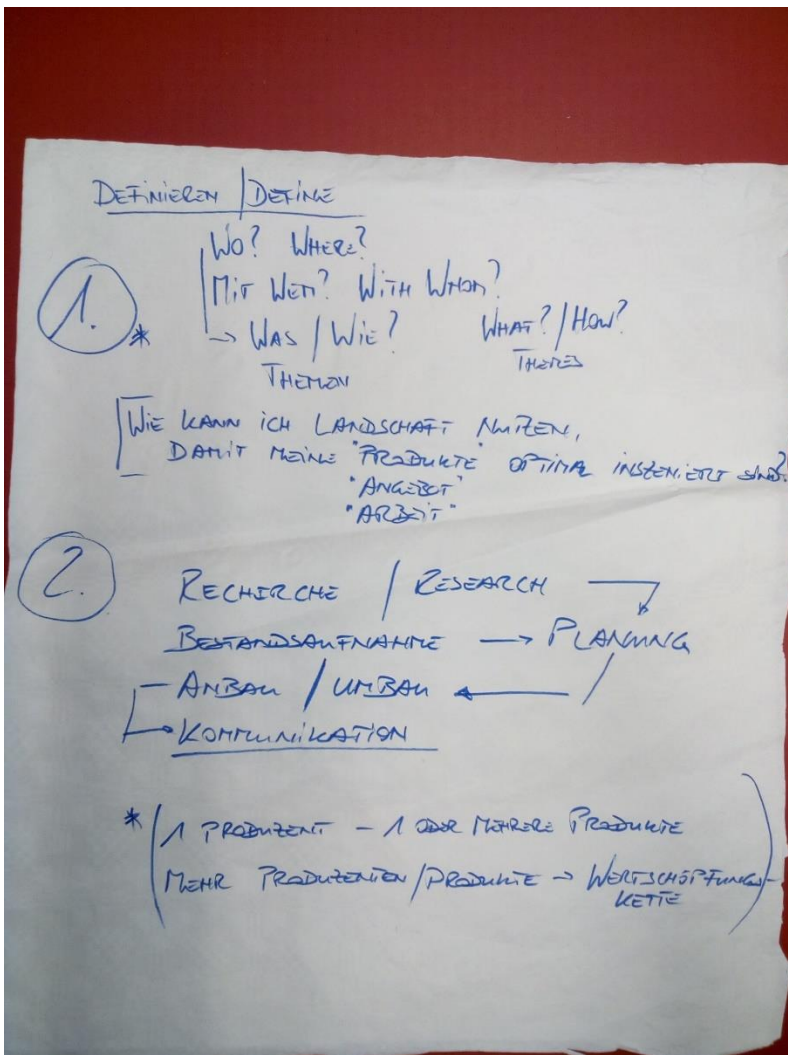 DEFINIEREN / DEFINE
WO? WHERE?
MIT WEM? WITH WHOM?
1. * → WAS / WIE? WHAT? / HOW?
THEMEN THEMES
[WIE KANN ICH LANDSCHAFT NUTZEN,
DAMIT MEINE "PRODUKTE" OPTIMAL INSZENIERT SIND?
"ANGEBOT"
"ARBEIT"
2. RECHERCHE / RESEARCH
BESTANDSAUFNAHME → PLANUNG
- ANBAU / UMBAU ←
→ KOMMUNIKATION
* (1 PRODUZENT - 1 ODER MEHRERE PRODUKTE
MEHR PRODUZENTEN/PRODUKTE → WERTSCHÖPFUNGS-
KETTE)